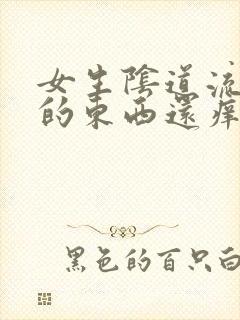 女生陰道流
的東西還痒
黑色的百只白